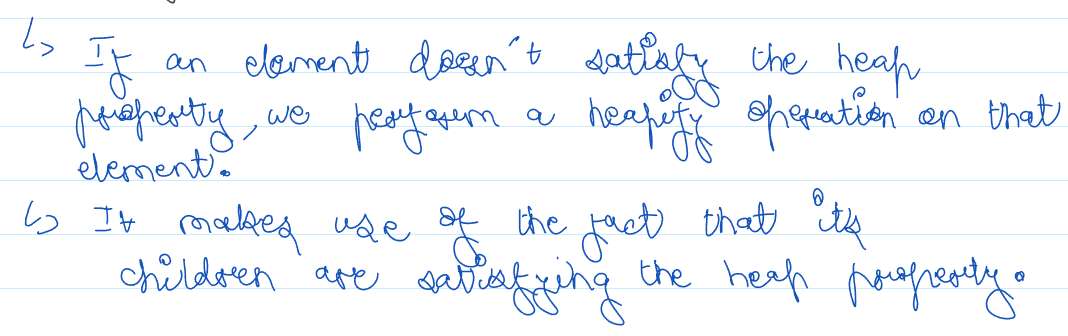 ↳ If an element doesn't satisfy the heap
property, we perform a heapify operation on that
element.
↳ It makes use of the fact that its
children are satisfying the heap property.